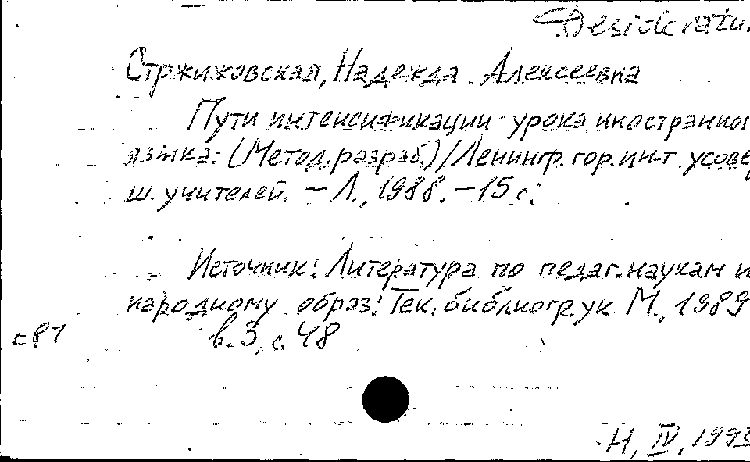 Desideratu
Стржижовская, Надежда Алексеевна
Пути интенсификации урока иностранног
языка: (Метод. разраб.) / Ленингр. гор. ин-т усове
ш. учителей. – Л., 1988. – 15 с.
Источник: Литература по педаг. наукам и
народному образ: Тек. библиогр. ук М., 1989
в. 3, с. 48
с 81
Н, IV, 1993